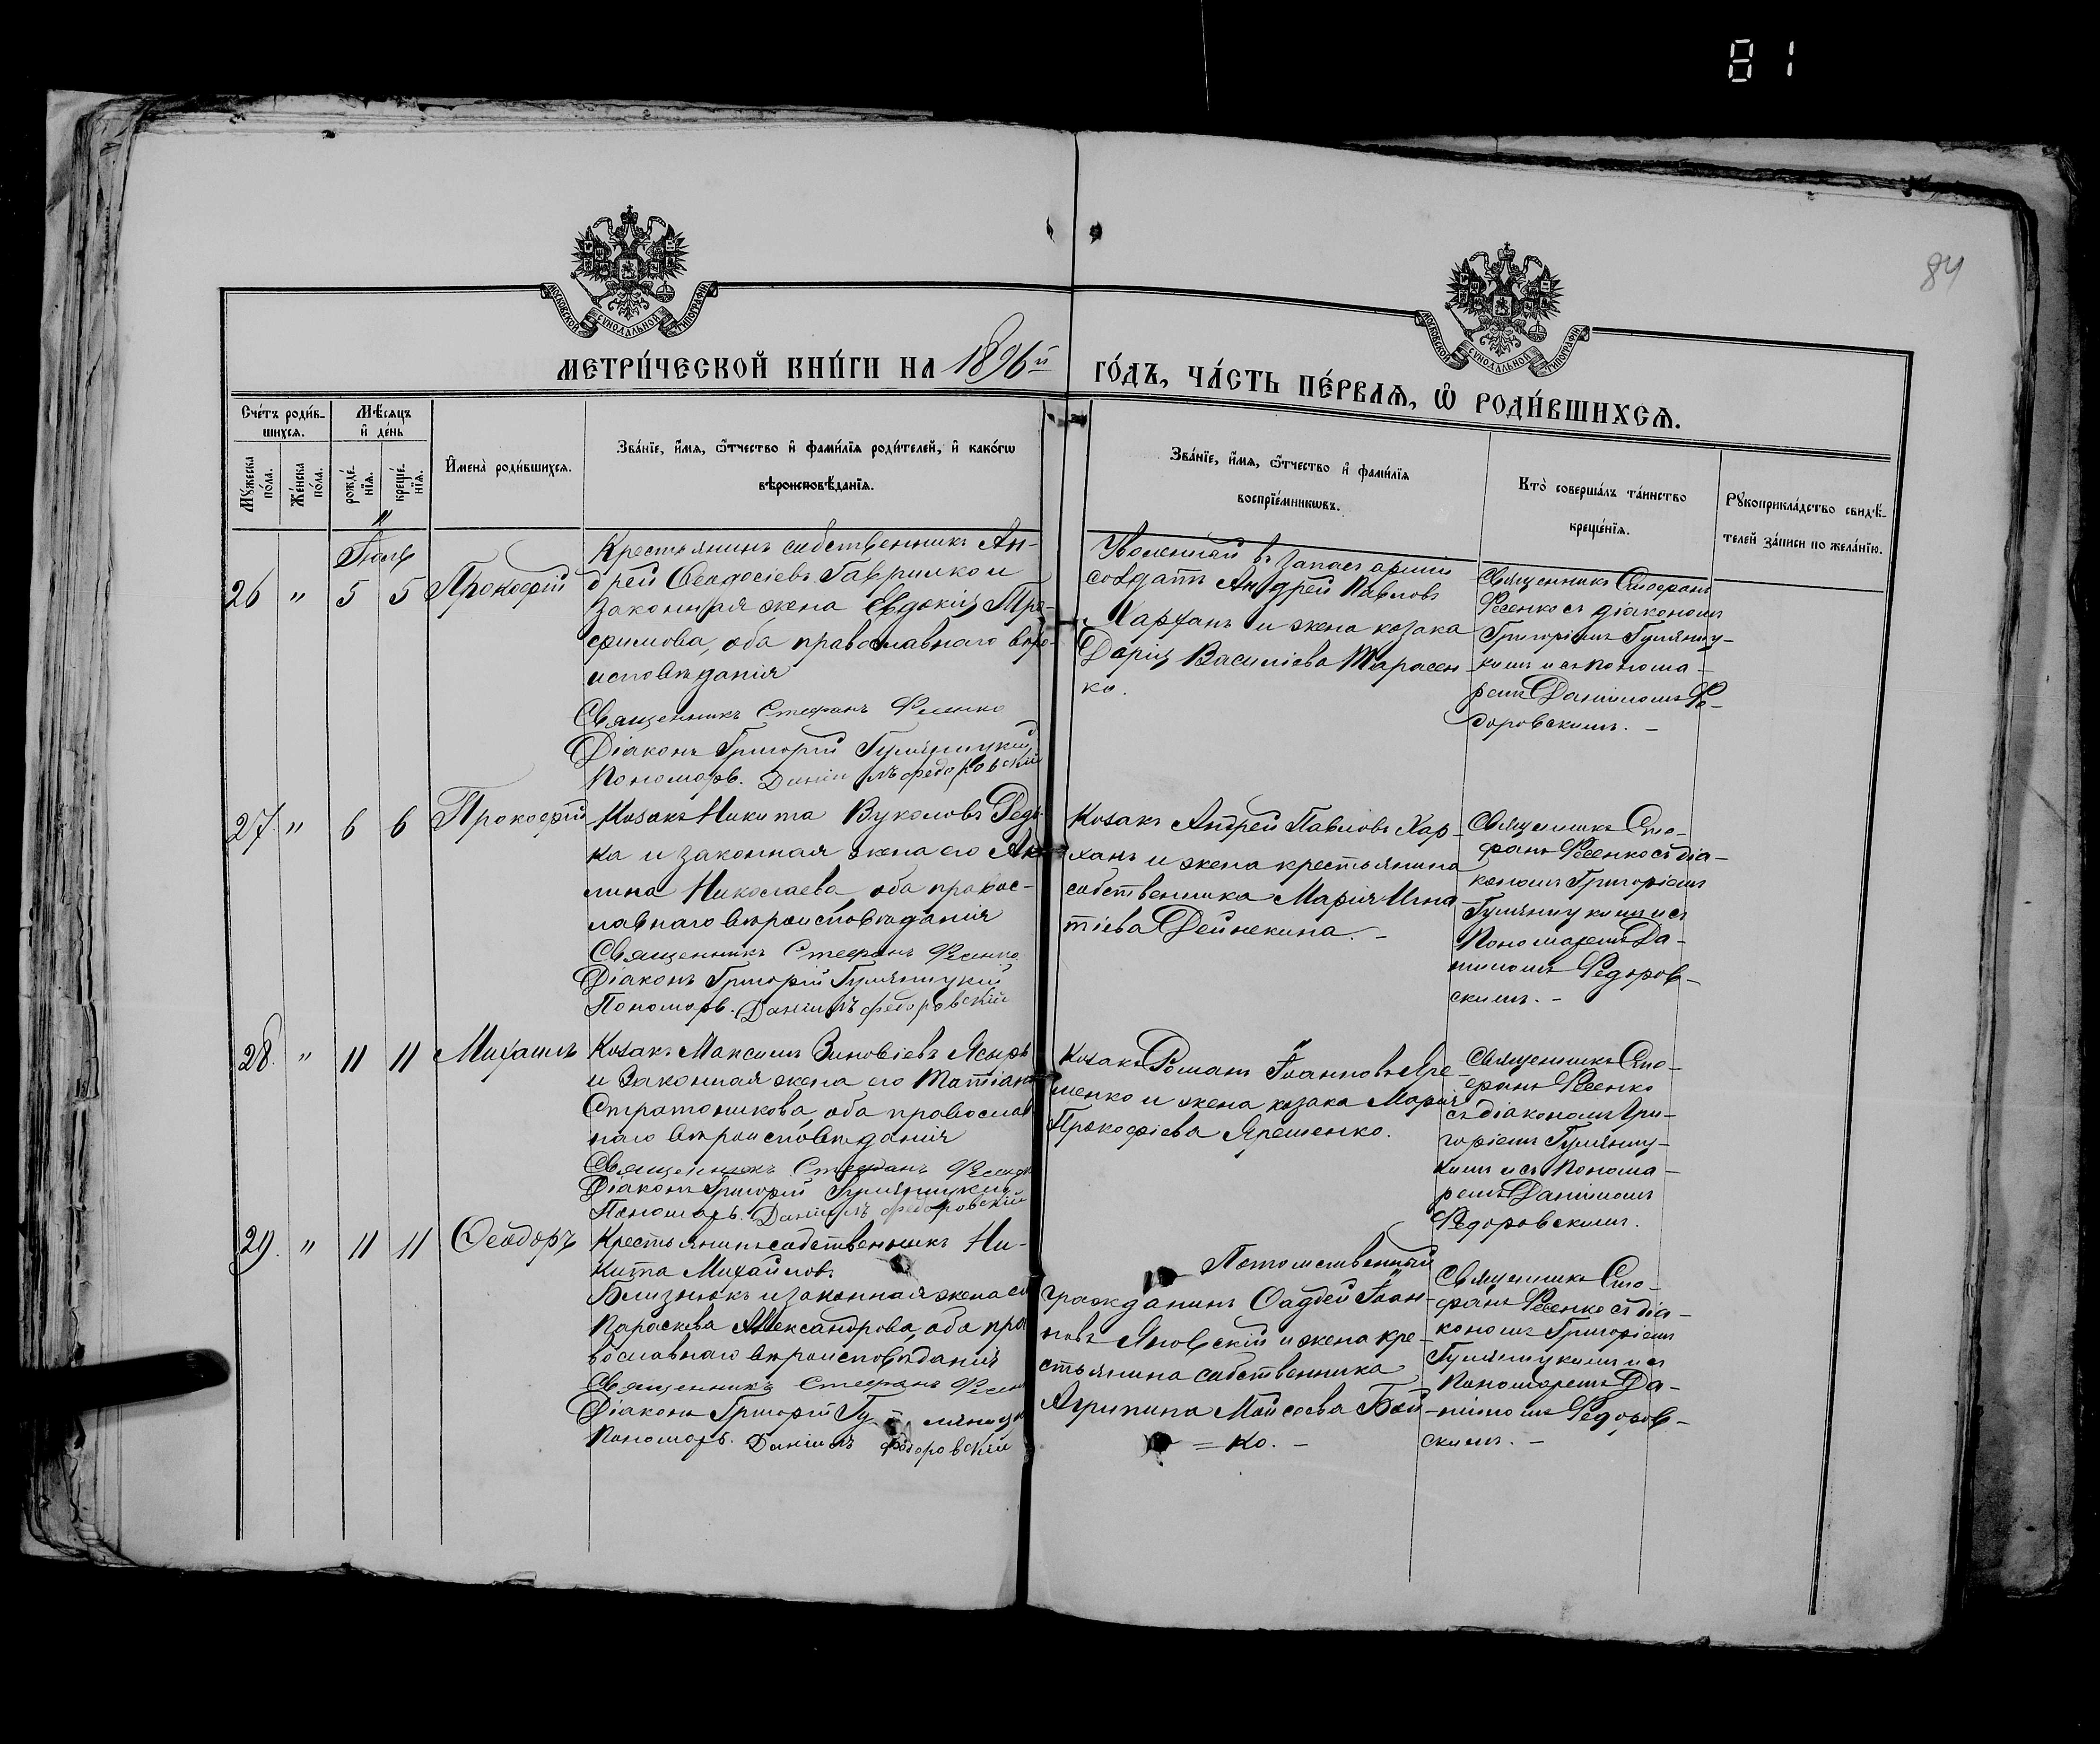 81
84
МОСКОВСКОЙ СѴНОДАЛЬНОЙ ТИПОГРАФІИ
МОСКОВСКОЙ СѴНОДАЛЬНОЙ ТИПОГРАФІИ
МЕТРИ́ЧЕСКОЙ КНИ́ГИ НА 1896й ГО́ДЪ, ЧА́СТЬ ПЕ́РВАѦ, Ѡ РОДИ́ВШИХСѦ.
Сче́тъ роди́в-
шихсѧ.
Мѣ́сѧцъ
и҆ де́нь
Мꙋ́жеска
по́ла.
Же́нска
по́ла.
рожде́-
нїѧ.
креще́-
нїѧ.
И҆мена̀ роди́вшихсѧ.
Зва́нїе, и҆́мѧ, ѻ҆́тчество и҆ фами́лїѧ роди́телей, и҆ како́гѡ
вѣроисповѣ́данїѧ.
Зва́нїе, и҆́мѧ, ѻ҆́тчество и҆ фами́лїѧ
воспрїе́мникѡвъ.
Кто̀ соверша́лъ та́инство
креще́нїѧ.
Рꙋкоприкла́дство свидѣ́-
телей за́писи по жела́нїю.
Іюль
26 " 5 5 Прокофій
Крестьянинъ собственникъ Ан-
дрей Ѳеодосіевъ Гаврилко и
законная жена Евдокія Тро-
фимова, оба православнаго вѣро-
исповѣданія
Священникъ Стефанъ Фесенко
Діаконъ Григорій Гуляницкій
Пономарь Даніилъ Федоровскій
Уволенный въ запасъ арміи
солдатъ Андрей Павловъ
Харханъ и жена козака
Дарія Василіева Тарасен-
ко.
Священникъ Стефанъ
Фесенко съ діакономъ
Григоріемъ Гуляниц-
кимъ и съ понома-
ремъ Даніиломъ Фе-
доровскимъ. -
27. " 6 6 Прокофій
Козакъ Никита Вуколовъ Редь-
ка и законная жена его Аку-
лина Николаева, оба правос-
лавнаго вѣроисповѣданія
Священникъ Стефанъ Фесенко
Діаконъ Григорій Гуляницкій
Пономарь. Даніилъ Федоровскій
Козакъ Андрей Павловъ Хар-
ханъ и жена крестьянина
собственника Марія Игна-
тіева Дейнекина. -
Священникъ Сте-
фанъ Фесенко съ діа-
кономъ Григоріемъ
Гуляницкимъ и съ
Пономаремъ Да-
ніиломъ Федоров-
скимъ. -
28. " 11 11 Михаилъ
Козакъ Максимъ Зиновіевъ
и законная жена его Татіана
Стратоникова, оба православ-
наго вѣроисповѣданія
Священникъ Стефанъ Фесенко
Діаконъ Григорій Гуляницкій
Пономарь. Даніилъ Федоровскій
Козакъ Романъ Іоанновъ Яре-
менко и жена козака Марія
Прокофіева Яременко.
Священникъ Сте-
фанъ Фесенко
съ діакономъ Гри-
горіемъ Гуляниц-
кимъ и съ Понома-
ремъ Даніиломъ
Федоровскимъ.
29. " 11 11 Ѳеодоръ
Крестьянинъ собственникъ Ни-
кита Михайловъ
Близнюкъ и законная жена его
Параскева Александрова, оба пра-
вославнаго вѣроисповѣданія
Священникъ Стефанъ Фесенко
Діаконъ Григорій Гуляницкій
Пономарь. Даніилъ Федоровскій
Потомственный
гражданинъ Ѳаддей Іоан-
новъ Яновскій и жена кре-
стьянина собственника
Агрипина Моисеева Бой-
= ко. -
Священникъ Сте-
фанъ Фесенко съ діа-
кономъ Григоріемъ
Гуляницкимъ и съ
Пономаремъ Да-
ніиломъ Федоров-
скимъ. -